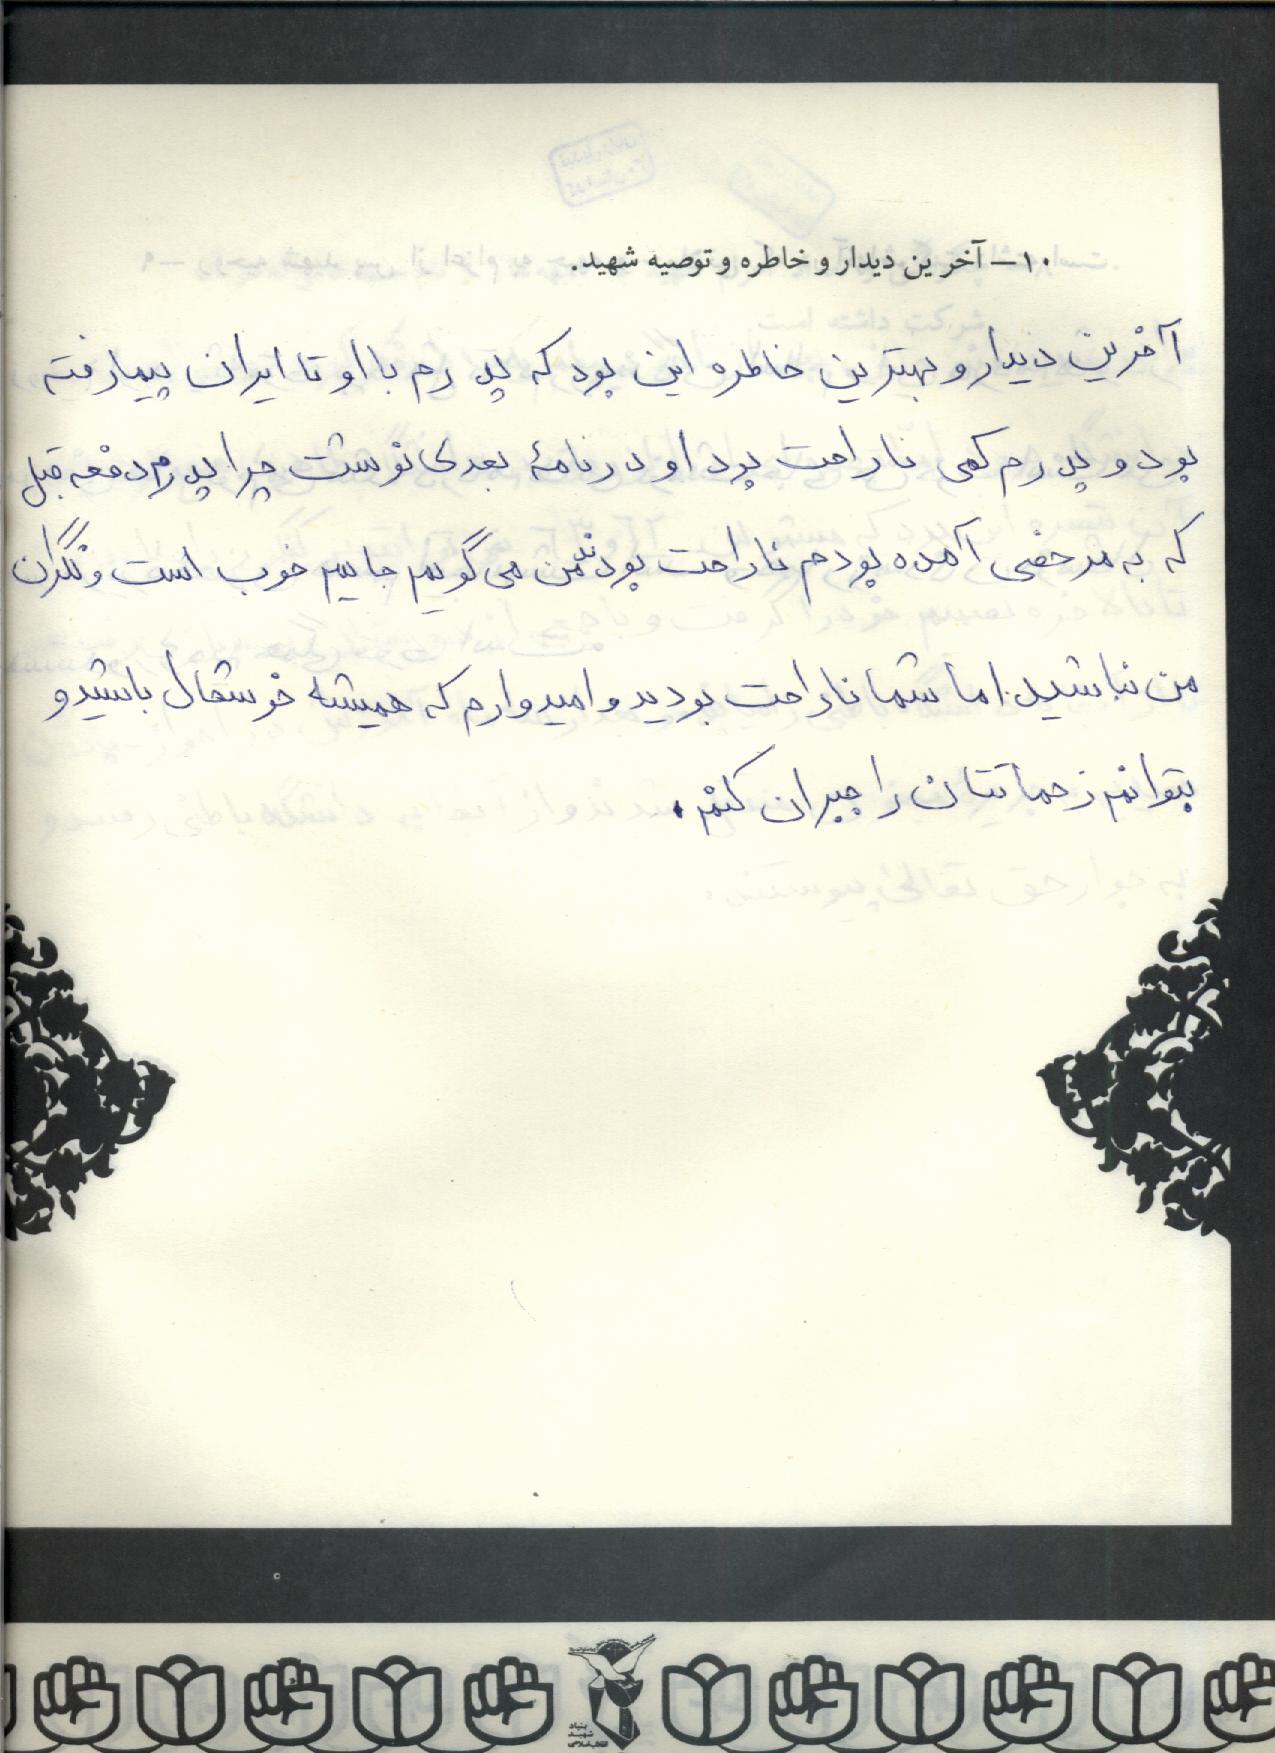 ۱۰– آخرین دیدار و خاطره و توصیه شهید.
آخرین دیدار و بهترین خاطره این بود که پدرم با او تا ایران پیما رفته
بود و پدرم کمی ناراحت بود او در نامهٔ بعدی نوشت چرا پدرم دفعه قبل
که به مرخصی آمده بودم ناراحت بودند من می گویم جایم خوب است و نگران
من نباشید. اما شما ناراحت بودید و امیدوارم که همیشه خوشحال باشید و
بتوانم زحماتتان را جبران کنم.
بنیاد
شهید
انقلاب اسلامی